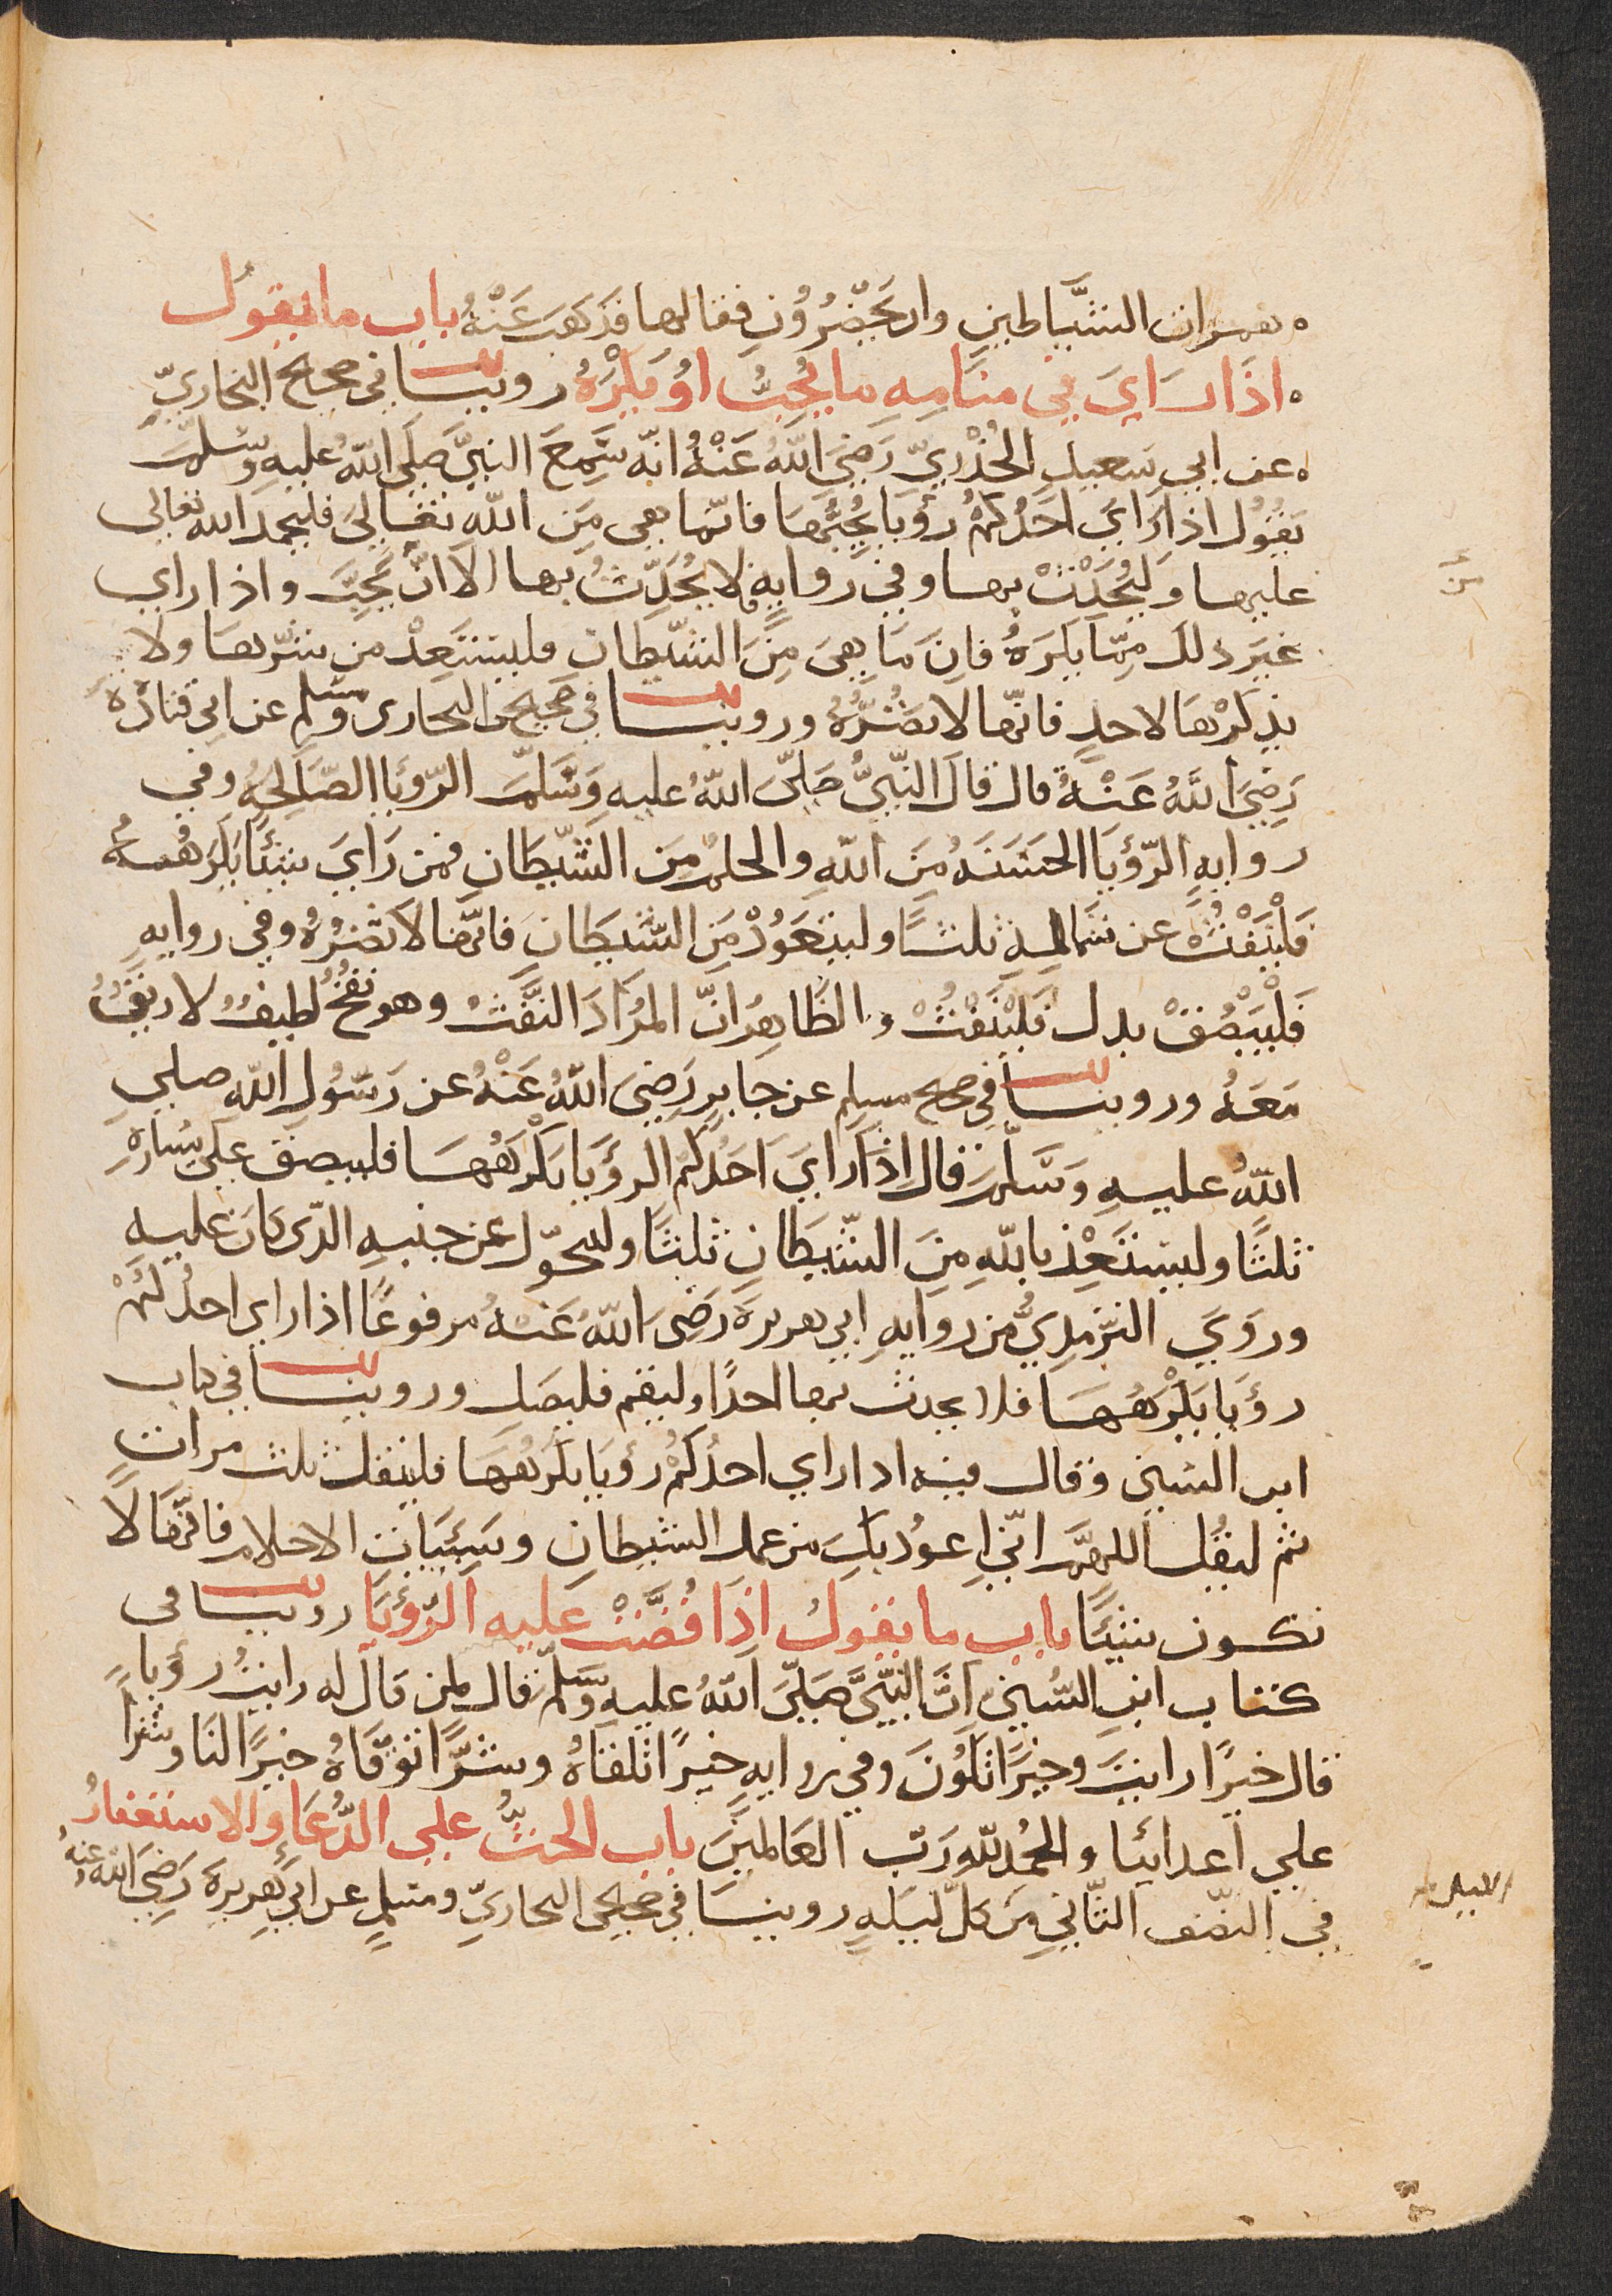 همزات الشَّياطين وان يَحْضُرُوْنِ فقالها فذهَبَ عَنْهُ باب ما يقول
اذَا رَايَ في منَامِه ما يُحِبُّ اوْ يَكْرَهُ روينا في صحيح البخاريّ
عن ابي سَعيدٍ الخُدْرِيّ رَضِيَ اللّهُ عَنْهُ انّه سَمِعَ النبيَّ صَلَى اللّهُ عليهِ وسَلمَّ
يقُوْلُ اذا رَايَ احَدُكمْ رؤيَا يُحِبُّهَا فانّما هي مِنَ اللّه تعَالَىَ فليحمد الله تعالى
عليها وَليُحَدِّثْ بها وفي روايةٍ فلا يُحَدِّثُ بها الاَّ مَنْ يُحِبَّ واذا راي
غيرَ ذلكَ مِمّا يكرَهُ فانمَا هِيَ مِنَ الشّيطانِ فليستَعِذْ من شرّهَا ولا
يذكرْهَا لاحدٍ فانّها لا تضُرُّهُ وروينا في صَحيحي البخارى ومُسْلمِ عن ابى قتادَةَ
رَضِيَ اللّهُ عَنْهُ قال قالَ النّبيُّ صَلىَّ اللّهُ عليهِ وَسَلّمَ الرّؤيَا الصّالحِةُ وفي
روايهِ الرّؤيَا الحسَنَهُ مِنَ اللّهِ والحلمُ مِنَ الشّيطَانِ فمن رَايَ شيئًا يكرَهُهُ
فَلْيَنْفُثْ عن شمَالهِ ثلثًا وليتعَوّذْ مِنَ الشّيطَانِ فانّها لا تضُرُهُ وفي روايهِ
فَلْيَبْصُقْ بدل فَليَنْفثْ والظّاهِرُ انّ المُرَادَ النَّفْثُ وهو نَفْخٌ لطيفٌ لا ريقَ
مَعَهُ وروينا في صحيح مسلمٍ عن جابرٍ رَضِيَ اللّهُ عَنْهُ عن رَسُوْلِ اللّه صلى
اللّهُ عليهِ وَسَلّمَ قال اذا رَايَ احَدُكمُ الرؤيَا يكْرَهُهَا فليبصق علَى يسَارهِ
ثلثًا وليستعِذْ باللّهِ مِنَ الشّيطَانِ ثلثًا وليتحوّل عن جنبهِ الذّى كانَ عليهِ
وروَىَ الترّمذِيُّ من روايهِ ابي هريرةَ رَضِىَ اللّهُ عَنهُ مرفوعًا اذا راي احدُكُمْ
رؤيَا يَكرَهُهَا فلا يحدث بها احدًا وليقم فليصَلِ وروينا في كتاب
ابن السّنيّ وقال فيه اذا راي احدُكمْ رؤيَا يَكرَهُهَا فليتفل ثلث مراتٍ
ثم ليقُل اللهمَّ انّي اعوُذ بكَ من عمل الشيطانِ وسَيّئَاتِ الاحلامِ فانّهَا لاَ
تكون شيئًا باب ما يقولُ اذَا قُصَّتْ عليه الرّؤيَا روينا فى
كتاب ابنِ السُّنيّ انَّ النّبيَّ صَلّىَ اللّهُ عليهِ وَسَلّمَ قال لمن قالَ له رايتُ رؤيَا
قال خيرًا رايتَ وخيرًا تكوُنَ وفي روايه خيرًا تلقاهُ وشرًّا توقّاهُ خيرًا لنَا وشرًّا
علي اعدائنا والحمُدللّهِ رَبّ العَالمينَ باب الحثُّ على الدُّعَا والاستغفارُ
في النصّف الثّاني مِن كلّ ليلهٍ روينا في صَحيحَى البخاريّ ومسلمٍ عن ابي هريرةَ رَضِيَ اللّهُ عنهُ